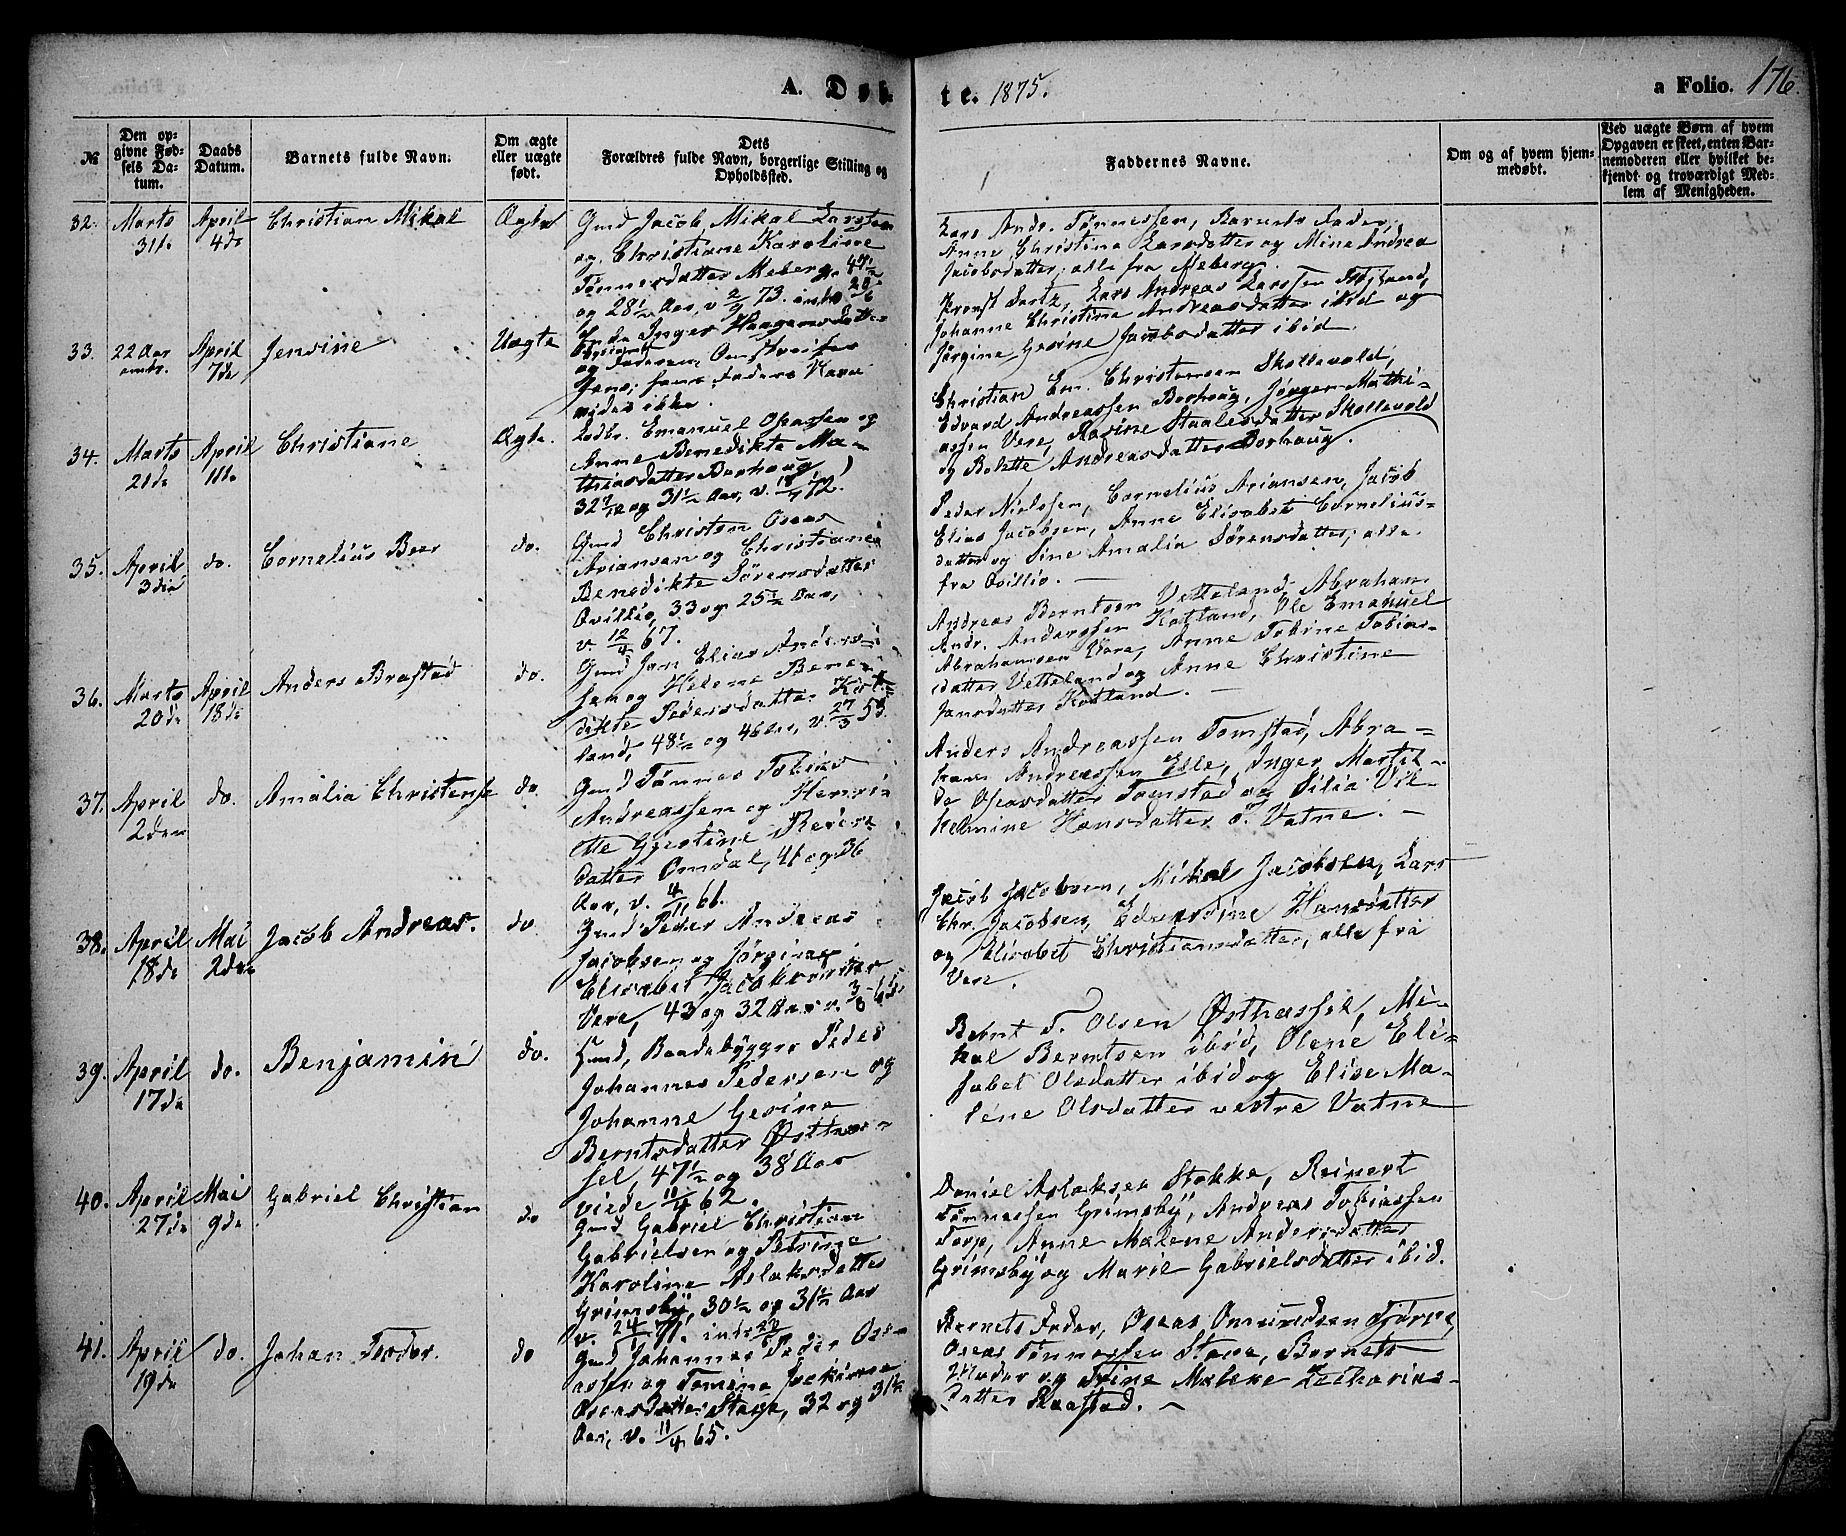 A. Døb-
te. 1875.
a Folio. 176.
№
Den op-
givne Fød-
sels Da-
tum.
Daabs
Datum.
Barnets fulde Navn.
Om ægte
eller uægte
født.
Dets
Forældres fulde Navn, borgerlige Stilling og
Opholdssted.
Faddernes Navne.
Om og af hvem hjem-
medøbt.
Ved uægte Børn af hvem
Opgaven er skeet, enten Bar-
nemoderen eller hvilket be-
kjendt og troværdigt Med-
lem af Menigheden.
32. Marts April Christian Mikal Ægte
31te 4de
Gmd Jacob Mikal Larsen
og Christiane Karoline
Tønnesdatter Meberg 47½
og 28½ Aar, v 2/7 73.
Lars Andr. Tønnessen, Barnets Fader,
Anne Christine Larsdatter og Mine Andrea
Jacobsdatter, alle fra Meberg.
33. 22 April Jensine Uægte
7de
Inger Haagensdatter
og Faderen Omstreifer
Jens, hans Faders Navn
vides ikke.
Provst Lars Andreas Larssen
Johanne Christine Andreasdatter ibid og
Jørgine Gesine Jacobsdatter ibid.
34. Marts April Christiane Ægte.
21de 11te
Emanuel Oseassen og
Anne Benedikte Ma-
thiasdatter Borhaug
32 og 31½ Aar, v. 18/7 72.
Christian Em. Christensen Skollevold,
Edvard Andreassen Borhaug, Jørgen Mathi-
assen Vere, Rasine Staalesdatter Skollevold
og Bolette Andreasdatter Borhaug.
35. April do. Cornelius Beer do.
3die
Gmd Christen Oseas
Ariansen og Christiane
Benedikte Sørensdatter
33 og 25½ Aar,
v. 12/4 67.
Peder Nielssen, Cornelius Ariansen, Jacob
Elias Jacobsen, Anne Elisabet Cornelius-
datter og Sine Amalia Sørensdatter, alle
fra
36. Marts April Anders Brastad do.
20de 18de
Gmd Jan Elias Anders-
sen og Helene Bene-
dikte Pedersdatter Kot-
land, 48½ og 46 Aar, v. 27/3 53.
Andreas Berntsen Vetteland, Abraham
Andr. Anderssen Kotland, Ole Emanuel
Abrahamsen Vere, Anne Tobine Tobias-
datter Vetteland og Anne Christine
Jansdatter Kotland.
37. April do. Amalia Christense do.
2den
Gmd Tønnes Tobias
Andreassen og Henri-
ette Gjestine Reiers-
datter Omdal, 41 og 36
Aar, v. 4/11 61.
Anders Andreassen Tomstad, Abra-
ham Andreassen Elle, Inger Martil-
de Oseasdatter Tomstad og Silia Vil-
helmine Hansdatter ø. Vatne.
38. April Mai Jacob Andreas. do
18de 2den
Gmd Peder Andreas
Jacobsen og Jørgine
Elisabet Jacobsdatter
Vere, 43 og 32 Aar v. 3/8
Jacob Jacobsen, Mikal Jacobsen, Lars
Chr. Jacobsen, Edvardine Hansdatter
og Elisabet Christiansdatter, alle fra
Vere.
39. April do. Benjamin do.
17de
Hmd, Baadebygger Peder
Johannes Pedersen og
Johanne Gesine
Berntsdatter Østhas-
sel, 47½ og 38 Aar
viede 11/4 62.
Bernt T. Olsen Østhassel, Mi-
kal Berntsen ibid, Olene Eli-
sabet Olsdatter ibid og Elise Ma-
lene Olsdatter vestre Vatne
40. April Mai Gabriel Christian do
27de 9de
Gmd Gabriel Christian
Gabrielsen og Petrine
Karoline Aslaksdatter
Grimsby, 30½ og 31½ Aar
v. 24/ 71.
Daniel Aslaksen Stokke, Reinert
Tønnessen Grimsby, Andreas Tobiassen
Torp, Anne Malene Andersdatter
Grimsby og Marie Gabrielsdatter ibid.
41. April do. Johan Teodor. do
19de
Gmd Johannes Peder Ose-
assen og Tomine Jockime
Oseasdatter Stave, 32 og 31½
Aar, v. 11/4 65.
Barnets Fader, Oseas Omundsen
Oseas Tønnessen Stave, Barnets
Moder og Trine Malene Zacharias-
datter